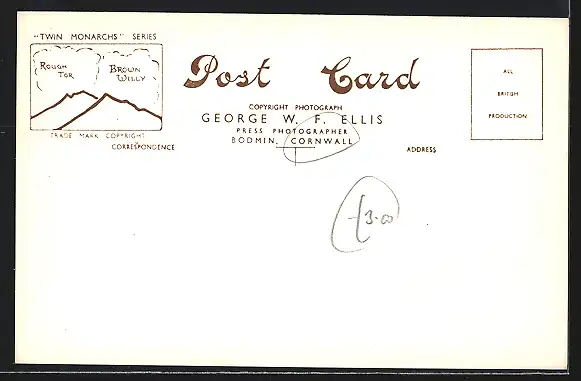 "TWIN MONARCHS" SERIES
ROUGH TOR
BROWN WILLY
TRADE MARK COPYRIGHT
CORRESPONDENCE
Post Card
COPYRIGHT PHOTOGRAPH
GEORGE W. F. ELLIS
PRESS PHOTOGRAPHER
BODMIN, CORNWALL
ADDRESS
ALL
BRITISH
PRODUCTION
£3.00